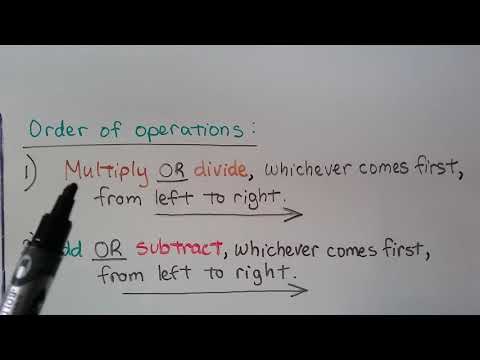 Order of operations:
1) Multiply OR divide, whichever comes first,
from left to right.
OR subtract, whichever comes first,
from left to right.